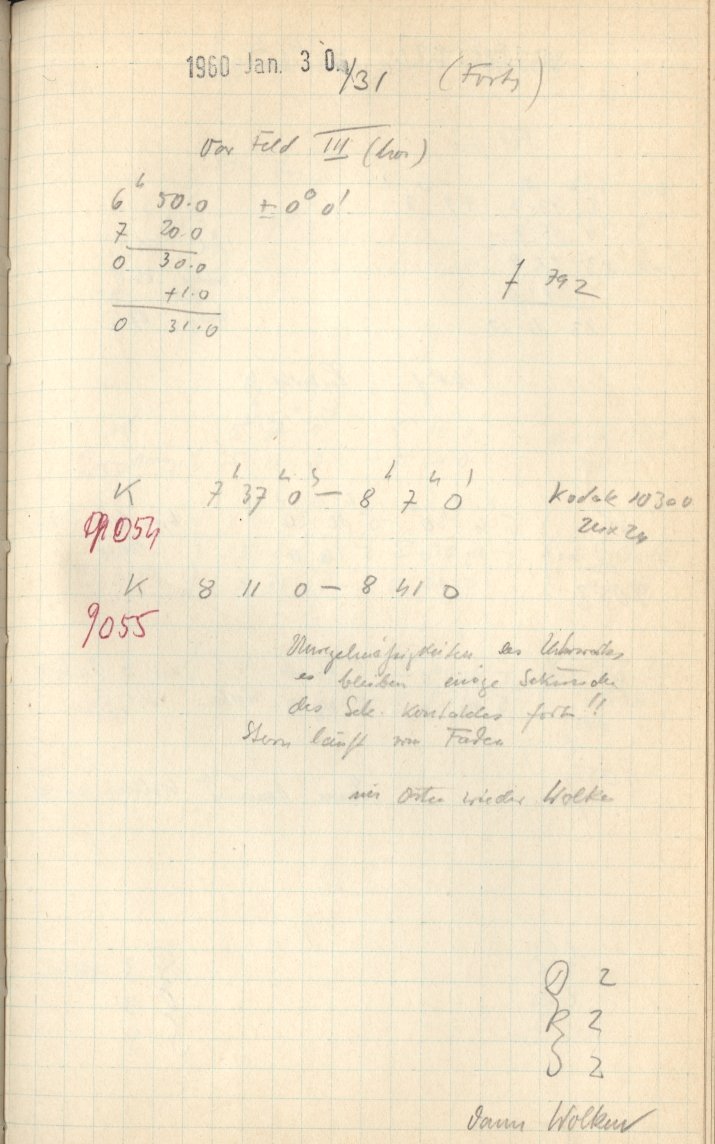 1960 Jan. 30./31 (Forts)
Var Feld III (hor)
6h 50.0 ± 0° 0'
7 20.0
0 30.0
+1.0
0 31.0
f 792
K 7 37 0 — 8 7 0 Kodak 10300
9054 24x24
K 8 11 0 — 8 41 0
9055
Unregelmäßigkeiten des Uhrwerkes
es bleiben einige Sekunden
des Sek. Kontaktes fort!!
Stern läuft vom Faden
im Osten wieder Wolken
D 2
R 2
S 2
dann Wolken